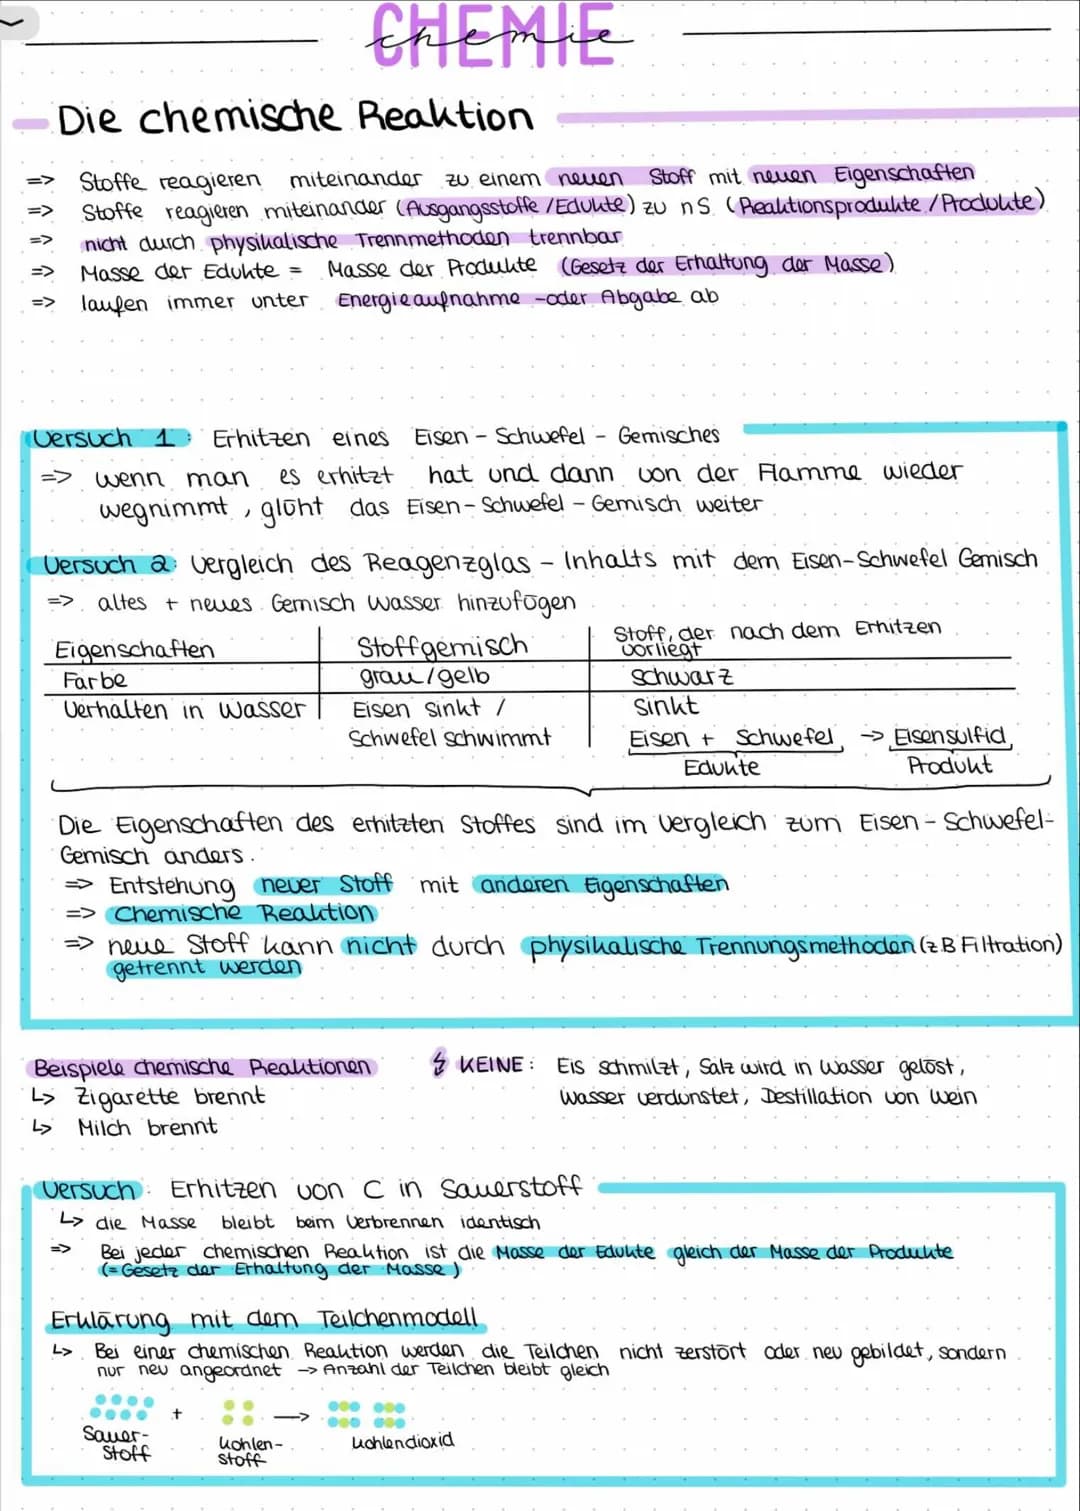 CHEMIE
chemie
Die chemische Reaktion
=> Stoffe reagieren miteinander zu einem neuen Stoff mit neuen Eigenschaften
=> Stoffe reagieren miteinander (Ausgangsstoffe/Edukte) zu nS (Reaktionsprodukte/Produkte)
=> nicht durch physikalische Trennmethoden trennbar
=> Masse der Edukte = Masse der Produkte (Gesetz der Erhaltung der Masse)
=> laufen immer unter Energieaufnahme -oder Abgabe ab
Versuch 1: Erhitzen eines Eisen - Schwefel - Gemisches
=> wenn man es erhitzt hat und dann von der Flamme wieder
wegnimmt, glüht das Eisen - Schwefel - Gemisch weiter
Versuch 2: Vergleich des Reagenzglas - Inhalts mit dem Eisen-Schwefel Gemisch
=> altes + neues Gemisch Wasser hinzufügen
Eigenschaften Stoffgemisch Stoff, der nach dem Erhitzen
vorliegt
Farbe grau/gelb schwarz
Verhalten in Wasser Eisen sinkt / sinkt
Schwefel schwimmt Eisen + Schwefel -> Eisensulfid
Edukte Produkt
Die Eigenschaften des erhitzten Stoffes sind im Vergleich zum Eisen - Schwefel-
Gemisch anders.
=> Entstehung neuer Stoff mit anderen Eigenschaften
=> Chemische Reaktion
=> neue Stoff kann nicht durch physikalische Trennungsmethoden (z.B Filtration)
getrennt werden
Beispiele chemische Reaktionen ↯ KEINE: Eis schmilzt, Salz wird in Wasser gelöst,
↳ Zigarette brennt Wasser verdunstet, Destillation von Wein
↳ Milch brennt
Versuch: Erhitzen von C in Sauerstoff
↳ die Masse bleibt beim Verbrennen identisch
=> Bei jeder chemischen Reaktion ist die Masse der Edukte gleich der Masse der Produkte
(= Gesetz der Erhaltung der Masse)
Erklärung mit dem Teilchenmodell
↳ Bei einer chemischen Reaktion werden die Teilchen nicht zerstört oder neu gebildet, sondern
nur neu angeordnet -> Anzahl der Teilchen bleibt gleich
+ ->
Sauer-
stoff
kohlen-
stoff
kohlendioxid